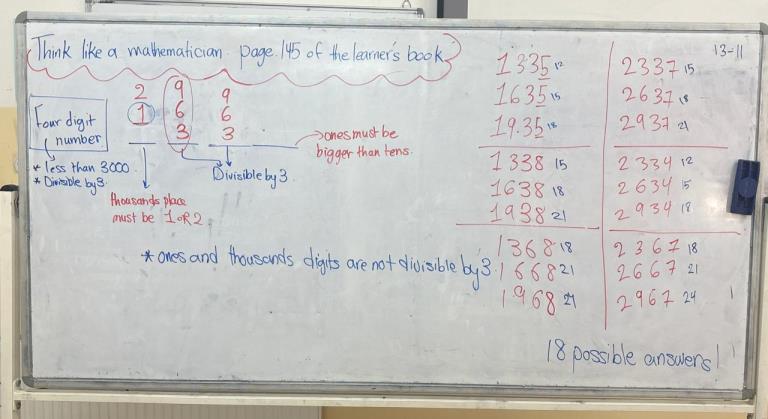 Think like a mathematician. page.145 of the learner's book
13-11
Four digit
number
* less than 3000.
* Divisible by 3.
2 9 9
1 6 6
3 3
thousands place
must be 1 OR 2.
Divisible by 3.
ones must be
bigger than tens.
* ones and thousands digits are not divisible by 3.
1335 12
1635 15
19.35 18
1338 15
1638 18
1938 21
1368 18
1668 21
1968 24
2337 15
2637 18
2937 21
2334 12
2634 15
2934 18
2367 18
2667 21
2967 24
18 possible answers!